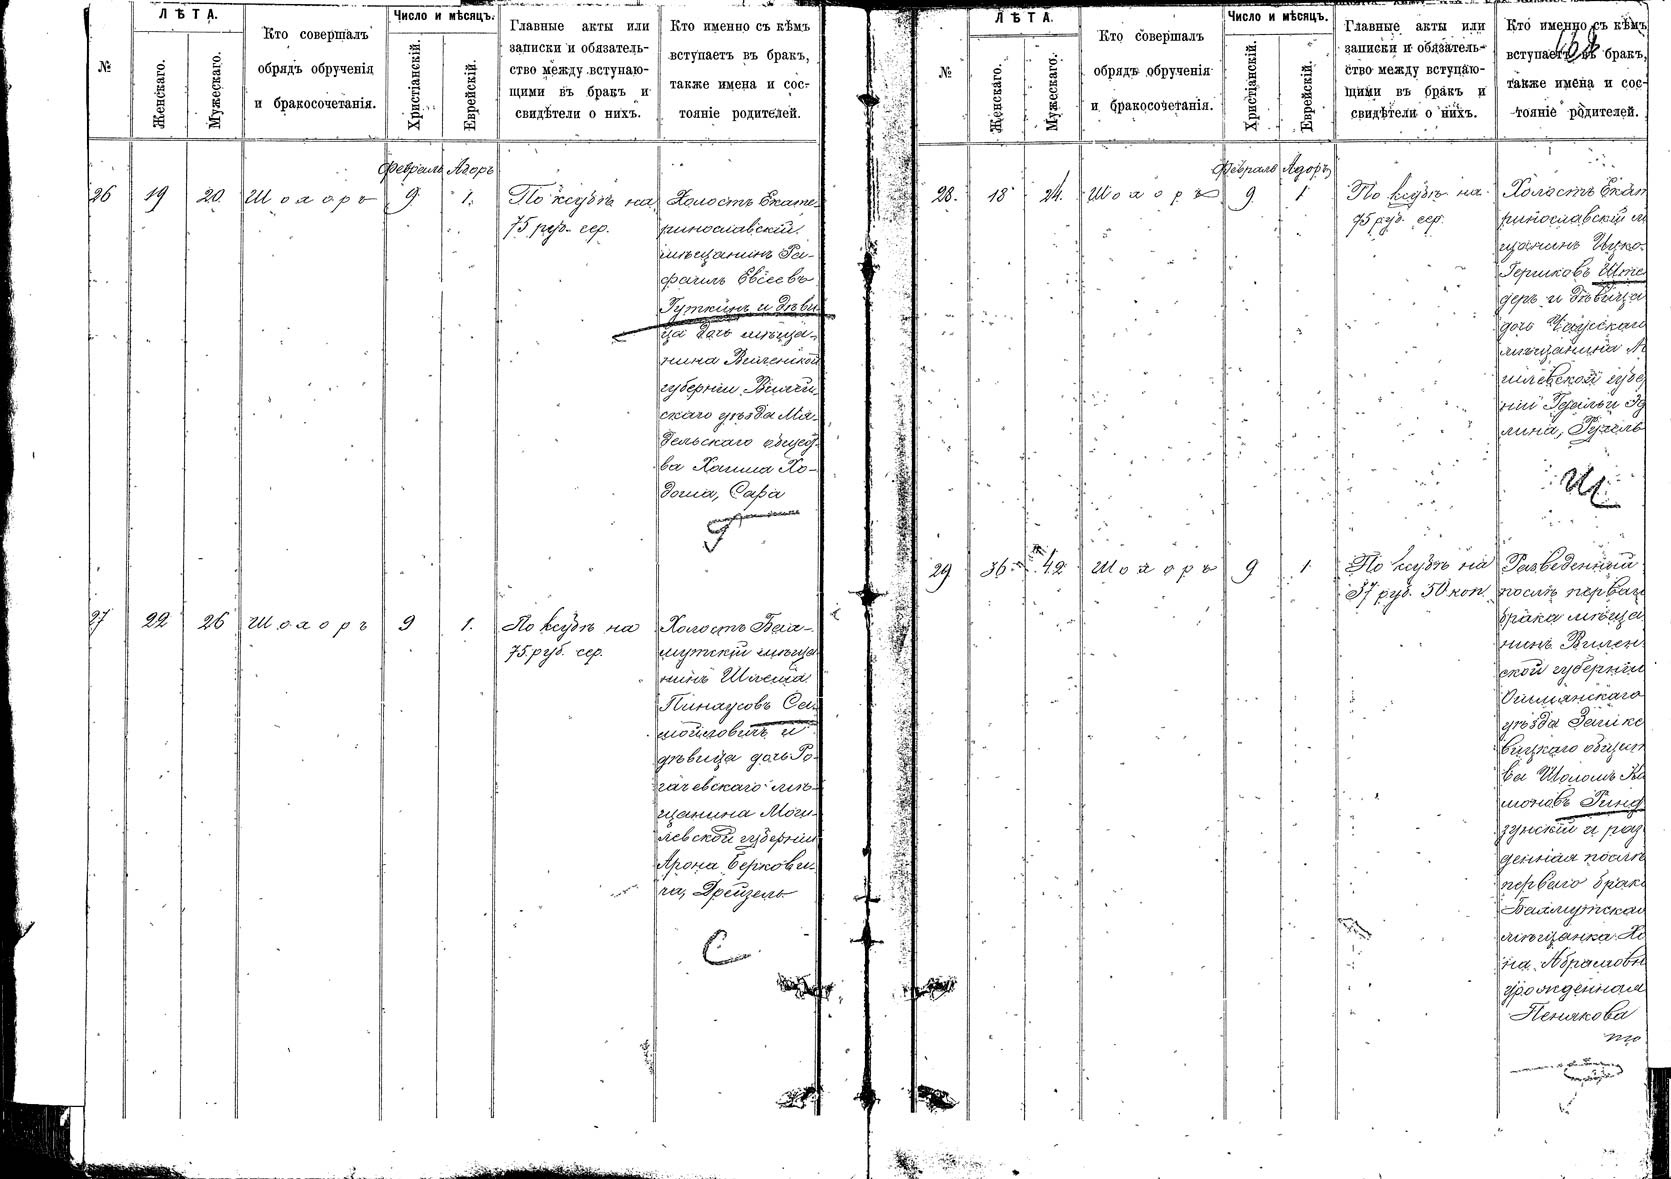 ЛѢТА.
Число и мѣсяцъ.
№
Женскаго.
Мужескаго.
Кто совершалъ
обрядъ обрученія
и бракосочетанія.
Христіанскій.
Еврейскій.
Главные акты или
записки и обязатель-
ство между вступаю-
щими въ бракъ и
свидѣтели о нихъ.
Кто именно съ кѣмъ
вступаетъ въ бракъ,
также имена и сос-
тояніе родителей.
Февраль Адоръ
26 19 20. Шохоръ 9 1.
По ксубѣ на
75 руб. сер.
Холостъ Екате-
ринославскій
мѣщанинъ Ра-
фаилъ Евсеевъ
Гуткинъ и дѣви-
ца дочь мѣща-
нина Виленской
губерніи Вилей-
скаго уѣзда Мя-
дельскаго общес-
ва Хаима Хо-
доша, Сара
27 22 26 Шохоръ 9 1.
По ксубѣ на
75 руб. сер.
Холостъ Бах-
мутскій мѣща-
нинъ Шлема
Пинхусовъ Са-
мойловичъ и
дѣвица дочь Ро-
гачевскаго мѣ-
щанина Моги-
левской губерніи
Арона Беркови-
ча, Дрейзель
С
ЛѢТА.
Число и мѣсяцъ.
№
Женскаго.
Мужескаго.
Кто совершалъ
обрядъ обрученія
и бракосочетанія.
Христіанскій.
Еврейскій.
Главные акты или
записки и обязатель-
ство между вступаю-
щими въ бракъ и
свидѣтели о нихъ.
Кто именно съ кѣмъ
вступаетъ въ бракъ,
также имена и сос-
тояніе родителей.
Февраль Адоръ
28. 18 24. Шохоръ 9 1
По ксубѣ на
75 руб. сер.
Холостъ Екат
ринославскій м
щанинъ Ицко-
ГершковъШте
деръ и дѣвица
дочь Чаускаго
мѣщанина Мо
гилевской губер
ніи
лина, Рухель
Ш
29 36 42 Шохоръ 9 1
По ксубѣ на
37 руб. 50 коп.
Разведенный
послѣ перваго
брака мѣща
нинъ Вилен
ской губерніи
Ошмянскаго
уѣзда
вицкаго общест
ва Шоломъ
моновъ Гинд
зунскій и раз
денная послѣ
перваго брака
Бахмутская
мѣщанка Ха
на Абрамовна
урожденная
Пенякова